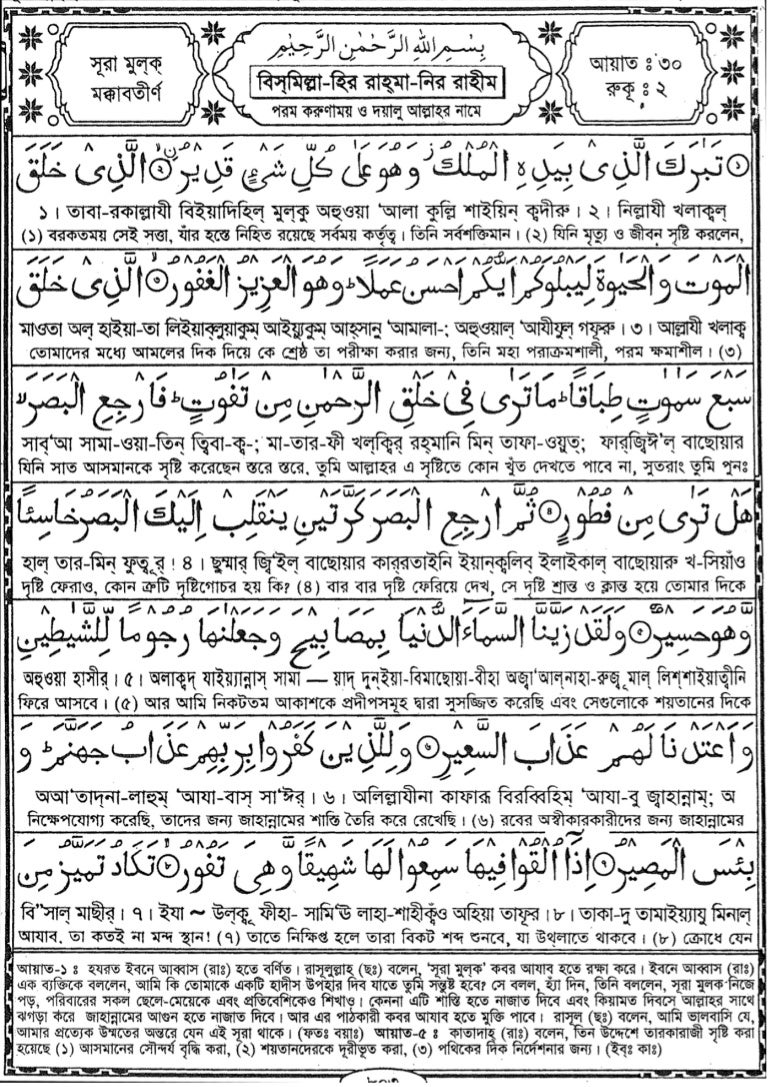 সূরা মুল্‌ক্
মক্কাবতীর্ণ
بِسْمِ اللهِ الرَّحْمٰنِ الرَّحِيْمِ
বিস্‌মিল্লা-হির রাহ্‌মা-নির রাহীম
পরম করুণাময় ও দয়ালু আল্লাহর নামে
আয়াত : ৩০
রুকূ : ২
① تَبٰرَكَ الَّذِيْ بِيَدِهِ الْمُلْكُ ز وَهُوَ عَلٰى كُلِّ شَيْءٍ قَدِيْرُ ② الَّذِيْ خَلَقَ
১। তাবা-রকাল্লাযী বিইয়াদিহিল্ মুল্‌কু অহুওয়া 'আলা কুল্লি শাইয়িন্ ক্বদীরু। ২। নিল্লাযী খলাক্বল্
(১) বরকতময় সেই সত্তা, যাঁর হস্তে নিহিত রয়েছে সর্বময় কর্তৃত্ব। তিনি সর্বশক্তিমান। (২) যিনি মৃত্যু ও জীবন সৃষ্টি করলেন,
الْمَوْتَ وَالْحَيٰوةَ لِيَبْلُوَكُمْ اَيُّكُمْ اَحْسَنُ عَمَلًا ط وَهُوَ الْعَزِيْزُ الْغَفُوْرُ ③ الَّذِيْ خَلَقَ
মাওতা অল্ হাইয়া-তা লিইয়াব্লুয়াকুম্ আইয়্যুকুম্ আহ্‌সানু 'আমালা-; অহুওয়াল্ 'আযীযুল্ গফূরু। ৩। আল্লাযী খলাক্ব
তোমাদের মধ্যে আমলের দিক দিয়ে কে শ্রেষ্ঠ তা পরীক্ষা করার জন্য, তিনি মহা পরাক্রমশালী, পরম ক্ষমাশীল। (৩)
سَبْعَ سَمٰوٰتٍ طِبَاقًا ط مَا تَرٰى فِيْ خَلْقِ الرَّحْمٰنِ مِنْ تَفٰوُتٍ ط فَارْجِعِ الْبَصَرَ لا
সাব্'আ সামা-ওয়া-তিন্ ত্বিবা-ক্ব-; মা-তার-ফী খল্‌ক্বির্ রহ্‌মানি মিন্ তাফা-ওয়ুত্; ফার্‌জ্বি'ল্ বাছোয়ার
যিনি সাত আসমানকে সৃষ্টি করেছেন স্তরে স্তরে, তুমি আল্লাহর এ সৃষ্টিতে কোন খুঁত দেখতে পাবে না, সুতরাং তুমি পুনঃ
هَلْ تَرٰى مِنْ فُطُوْرٍ ④ ثُمَّ ارْجِعِ الْبَصَرَ كَرَّتَيْنِ يَنْقَلِبْ اِلَيْكَ الْبَصَرُ خَاسِئًا
হাল্ তার-মিন্ ফুতূর্। ৪। ছুম্মার্ জ্বি'ইল্ বাছোয়ার কার্‌রতাইনি ইয়ান্‌ক্বলিব্ ইলাইকাল্ বাছোয়ারু খ-সিয়াঁও
দৃষ্টি ফেরাও, কোন ত্রুটি দৃষ্টিগোচর হয় কি? (৪) বার বার দৃষ্টি ফেরিয়ে দেখ, সে দৃষ্টি শ্রান্ত ও ক্লান্ত হয়ে তোমার দিকে
وَّهُوَ حَسِيْرٌ ⑤ وَلَقَدْ زَيَّنَّا السَّمَآءَ الدُّنْيَا بِمَصَابِيْحَ وَجَعَلْنٰهَا رُجُوْمًا لِّلشَّيٰطِيْنِ
অহুওয়া হাসীর্। ৫। অলাক্বদ্ যাইয়্যান্নাস্ সামা — য়াদ্ দুন্‌ইয়া-বিমাছোয়া-বীহা অজ্বা'আল্‌নাহা-রুজূমাল্ লিশ্‌শাইয়াত্বীনি
ফিরে আসবে। (৫) আর আমি নিকটতম আকাশকে প্রদীপসমূহ দ্বারা সুসজ্জিত করেছি এবং সেগুলোকে শয়তানের দিকে
وَاَعْتَدْنَا لَهُمْ عَذَابَ السَّعِيْرِ ⑥ وَلِلَّذِيْنَ كَفَرُوْا بِرَبِّهِمْ عَذَابُ جَهَنَّمَ ط وَ
অআ'তাদ্‌না-লাহুম্ 'আযা-বাস্ সা'ঈর্। ৬। অলিল্লাযীনা কাফারূ বিরব্বিহিম্ 'আযা-বু জ্বাহান্নাম্; অ
নিক্ষেপযোগ্য করেছি, তাদের জন্য জাহান্নামের শাস্তি তৈরি করে রেখেছি। (৬) রবের অস্বীকারকারীদের জন্য জাহান্নামের
بِئْسَ الْمَصِيْرُ ⑦ اِذَآ اُلْقُوْا فِيْهَا سَمِعُوْا لَهَا شَهِيْقًا وَّهِيَ تَفُوْرُ ⑧ تَكَادُ تَمَيَّزُ مِنَ
বি"সাল্ মাছীর্। ৭। ইযা ~ উল্‌কূ ফীহা- সামি'ঊ লাহা-শাহীক্বঁও অহিয়া তাফূর। ৮। তাকা-দু তামাইয়্যাযু মিনাল্
আযাব, তা কতই না মন্দ স্থান! (৭) তাতে নিক্ষিপ্ত হলে তারা বিকট শব্দ শুনবে, যা উথলাতে থাকবে। (৮) ক্রোধে যেন
আয়াত-১ : হযরত ইবনে আব্বাস (রাঃ) হতে বর্ণিত। রাসূলুল্লাহ্ (ছঃ) বলেন, 'সূরা মুল্‌ক' কবর আযাব হতে রক্ষা করে। ইবনে আব্বাস (রাঃ)
এক ব্যক্তিকে বললেন, আমি কি তোমাকে একটি হাদীস উপহার দিব যাতে তুমি সন্তুষ্ট হবে? সে বলল, হ্যা দিন, তিনি বললেন, সূরা মুলক নিজে
পড়, পরিবারের সকল ছেলে-মেয়েকে এবং প্রতিবেশিকেও শিখাও। কেননা এটি শাস্তি হতে নাজাত দিবে এবং কিয়ামত দিবসে আল্লাহর সাথে
ঝগড়া করে জাহান্নামের আগুন হতে নাজাত দিবে। আর এর পাঠকারী কবর আযাব হতে মুক্তি পাবে। রাসূল (ছঃ) বলেন, আমি ভালবাসি যে,
আমার প্রত্যেক উম্মতের অন্তরে যেন এই সূরা থাকে। (ফতঃ বয়াঃ) আয়াত-৫ : কাতাদাহ্ (রাঃ) বলেন, তিন উদ্দেশে তারকারাজী সৃষ্টি করা
হয়েছে (১) আসমানের সৌন্দর্য বৃদ্ধি করা, (২) শয়তানদেরকে দূরীভূত করা, (৩) পথিকের দিক নির্দেশনার জন্য। (ইবঃ কাঃ)